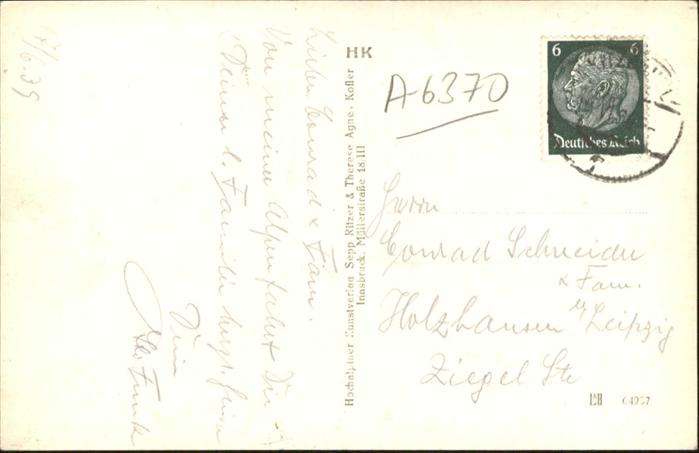 7/6.39
Lieber Conrad & Fam.
Von meiner Alpenfahrt Dir &
Deiner l. Familie herzl.
Dein
HK
Hochalpiner Kunstverlag Sepp Ritzer & Therese Agne-Kofler
Innsbruck, Müllerstraße 18 III
A-6370
6 6
Deutsches Reich
Herrn
Conrad Schneider
& Fam.
Holzhausen b/ Leipzig
Ziegel Str